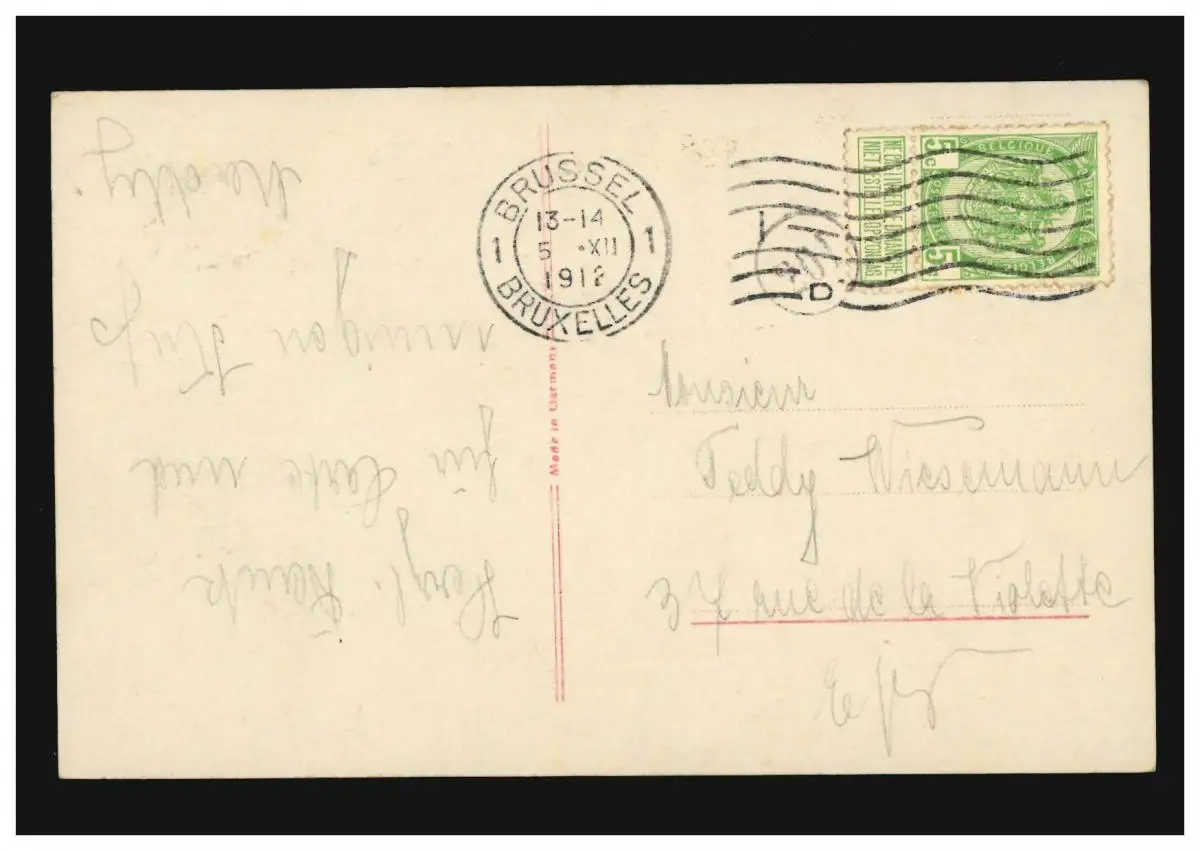 BRUSSEL
1 13-14 1
5 XII
1912
BRUXELLES
BELGIQUE
5c
5c
NE PAS LIVRER LE DIMANCHE
NIET BESTELLEN OP ZONDAG
D
Made in Germany
Monsieur
Teddy Wiesemann
37 rue de la Violette
Herzl. Dank
für Karte und
innigen Kuß